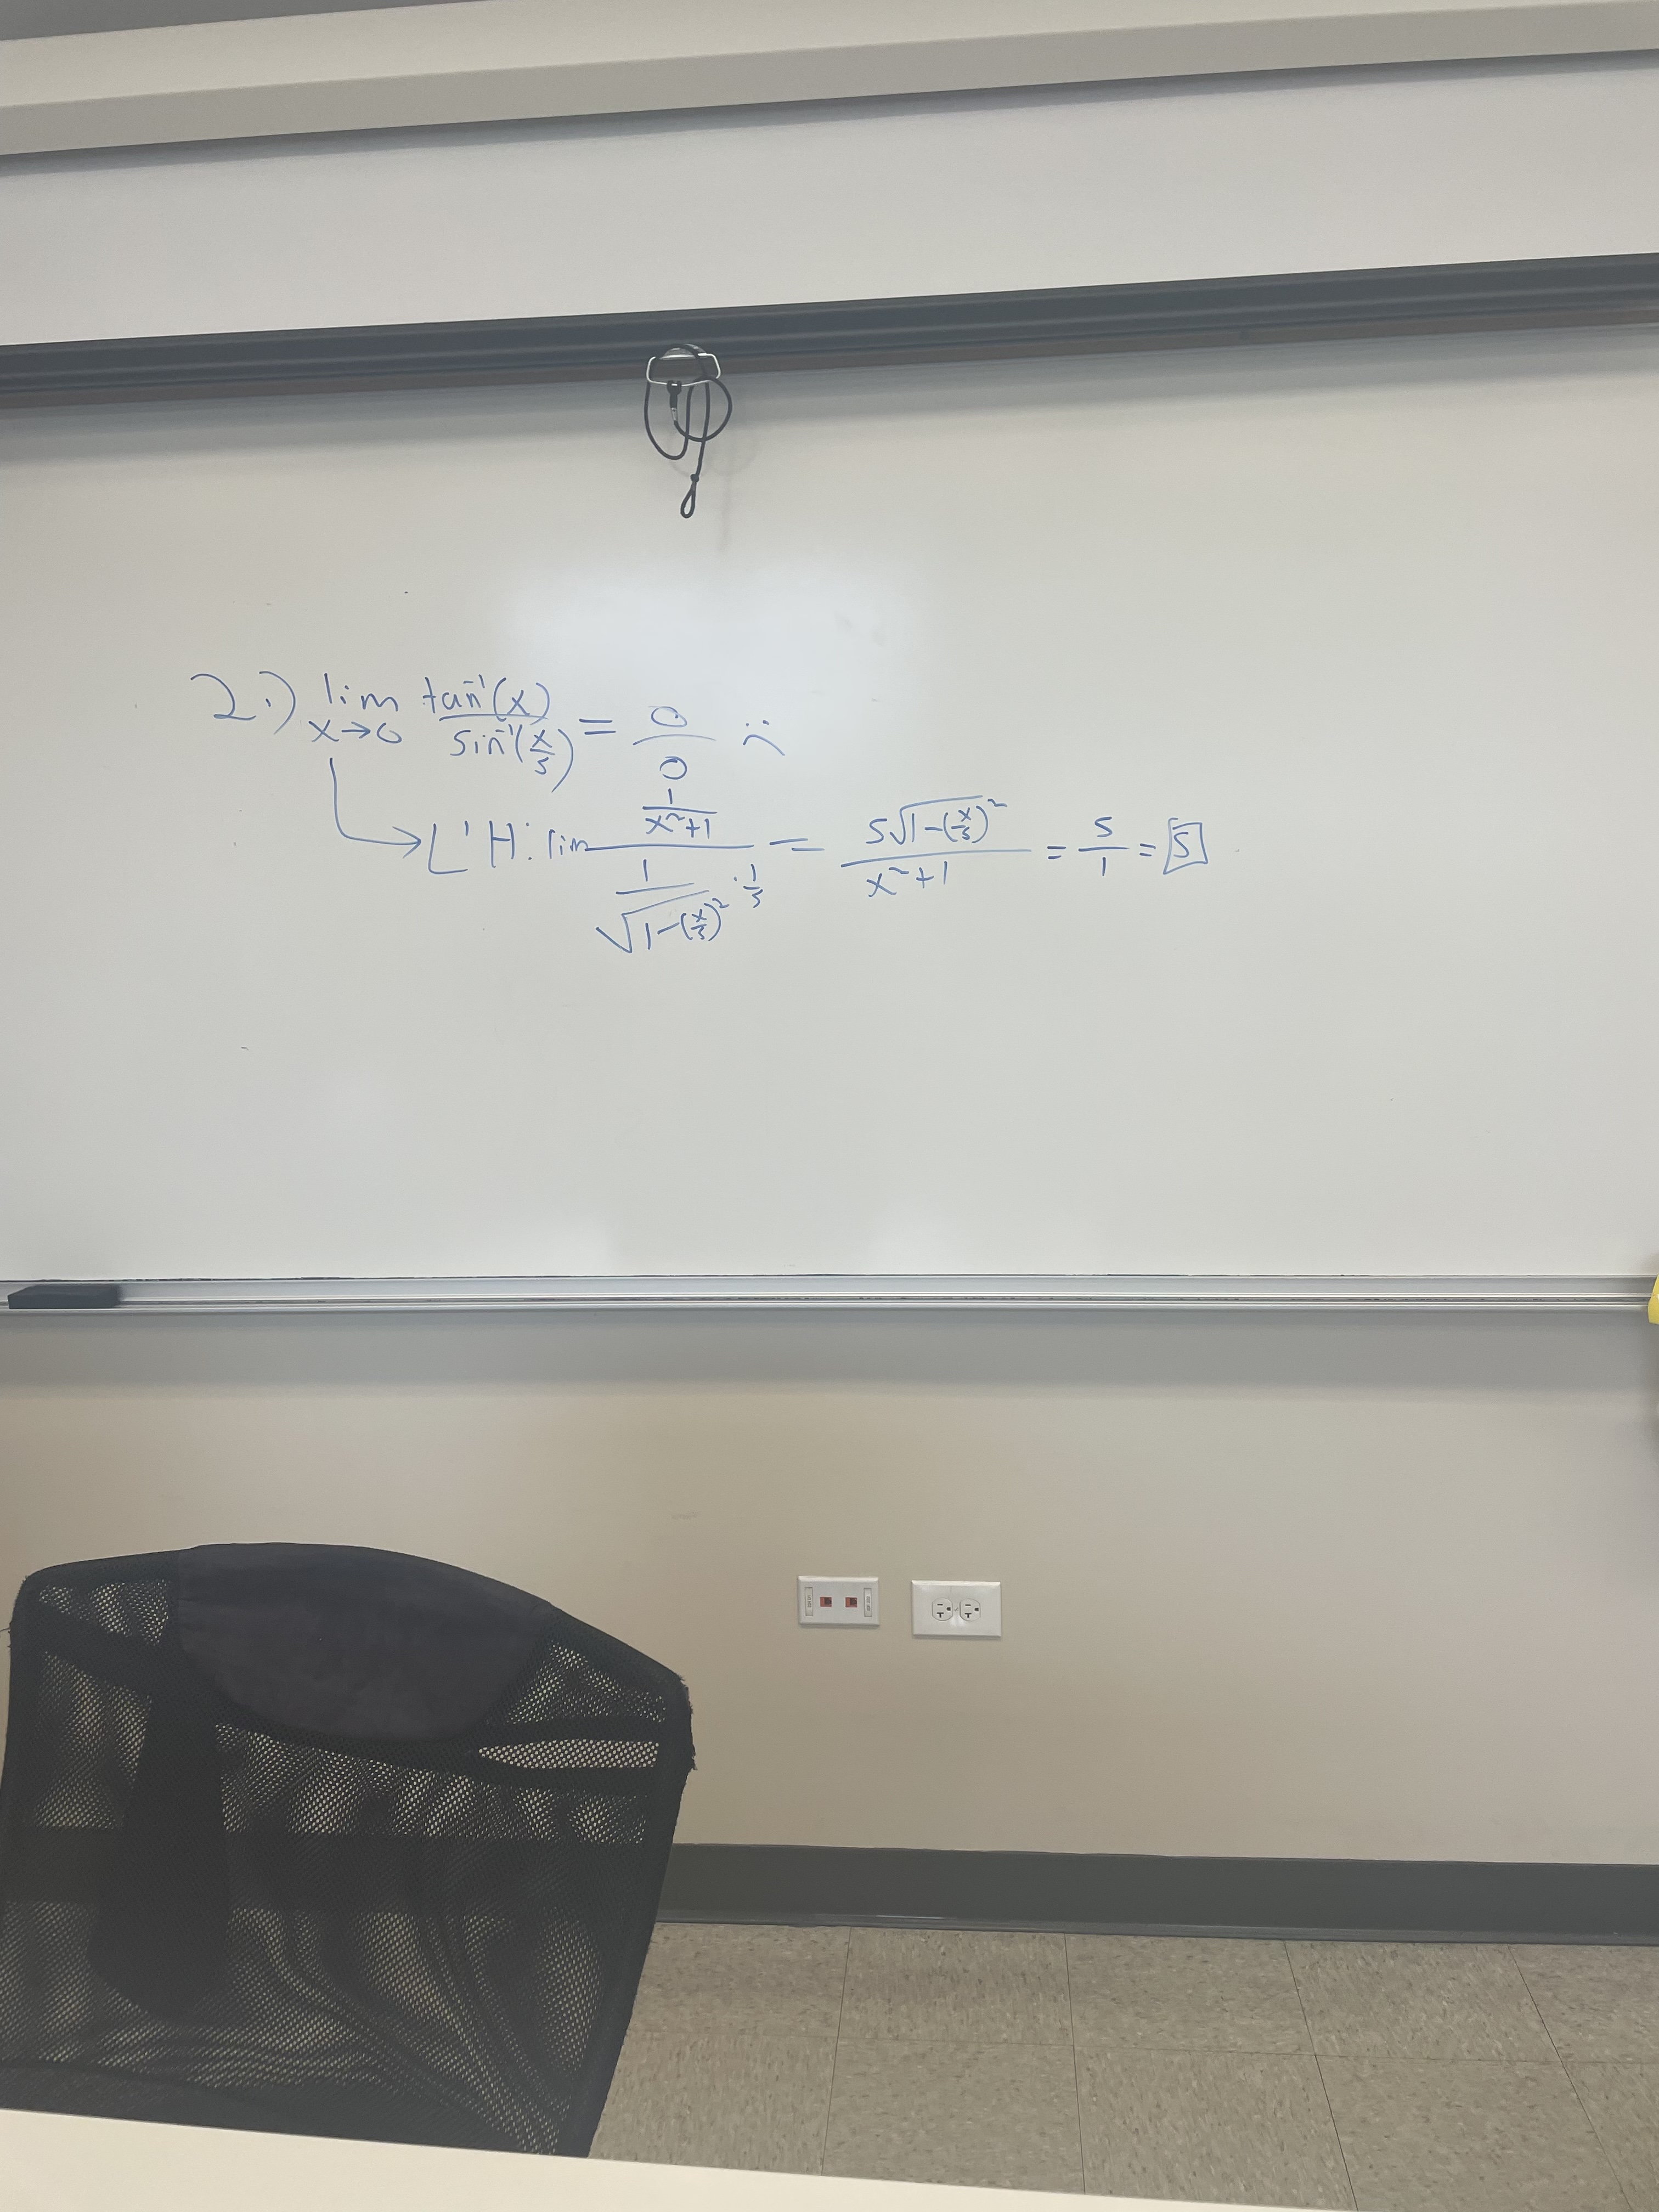 2.) lim x→0 tan⁻¹(x) / sin⁻¹(x/5) = 0/0 :(
L'H: lim (1/(x²+1)) / (1/√(1-(x/5)²) · 1/5) = 5√(1-(x/5)²) / (x²+1) = 5/1 = 5